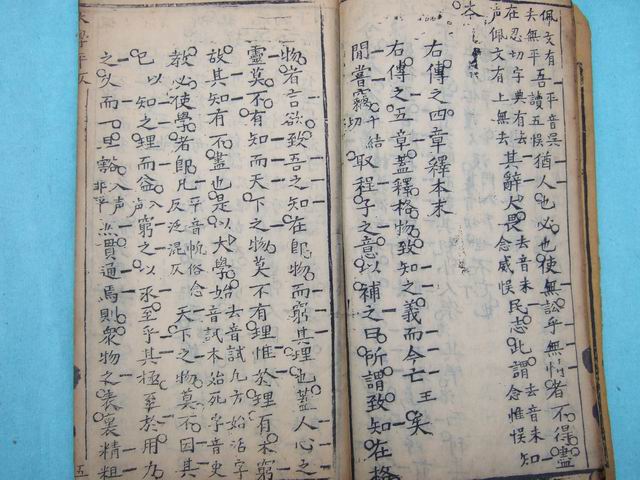 佩文有平音吳去無平吾讀五悞猶人也必也使無訟乎無情者不得盡
在忍切字典有去声佩文有上無去其辭大畏去音未念威悞民志此謂去音未念惟悞知
本
右傳之四章釋本末
右傳之五章蓋釋格物致知之義而今亡王矣
閒嘗竊千結切取程子之意以補之曰所謂致知在格
物者言欲致吾之知在即物而窮其理也蓋人心之
靈莫不有知而天下之物莫不有理惟於理有未窮
故其知有不盡也是以大學始去音試凡方始活字音試本始死字音史
教必使學者即凡平音帆俗念反泛混仄天下之物莫不因其
已以知之理而益入声窮之以求至乎其極至於用力
之久而一旦豁入声非平然貫通焉則衆物之表裏精粗
五